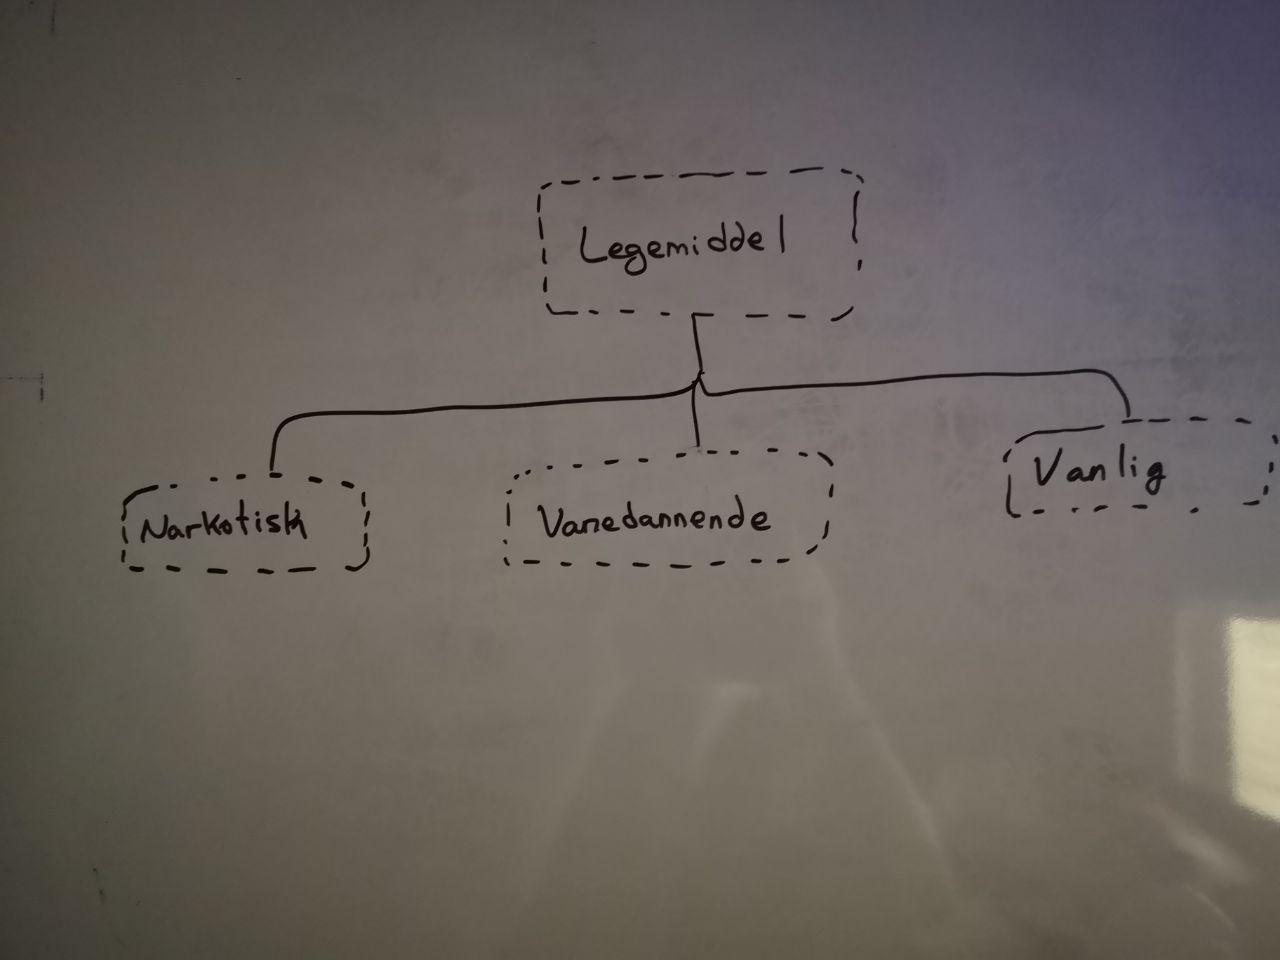 Legemiddel
Narkotisk
Vanedannende
Vanlig